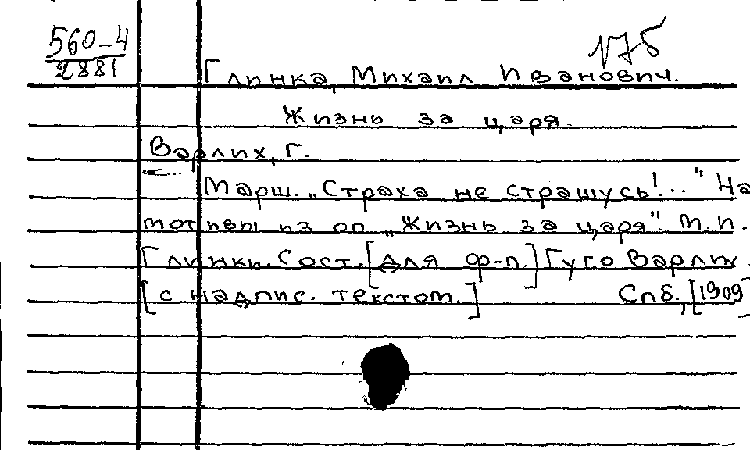 560-4
2881
Глинка, Михаил Иванович.
Жизнь за царя.
Варлих, Г.
Марш. „Страха не страшусь!.." На
мотивы из оп. „Жизнь за царя". М.И.
Глинки. Сост. [для ф-п.] Гуго Варлих.
[с надпис. текстом.] Спб., [1909]